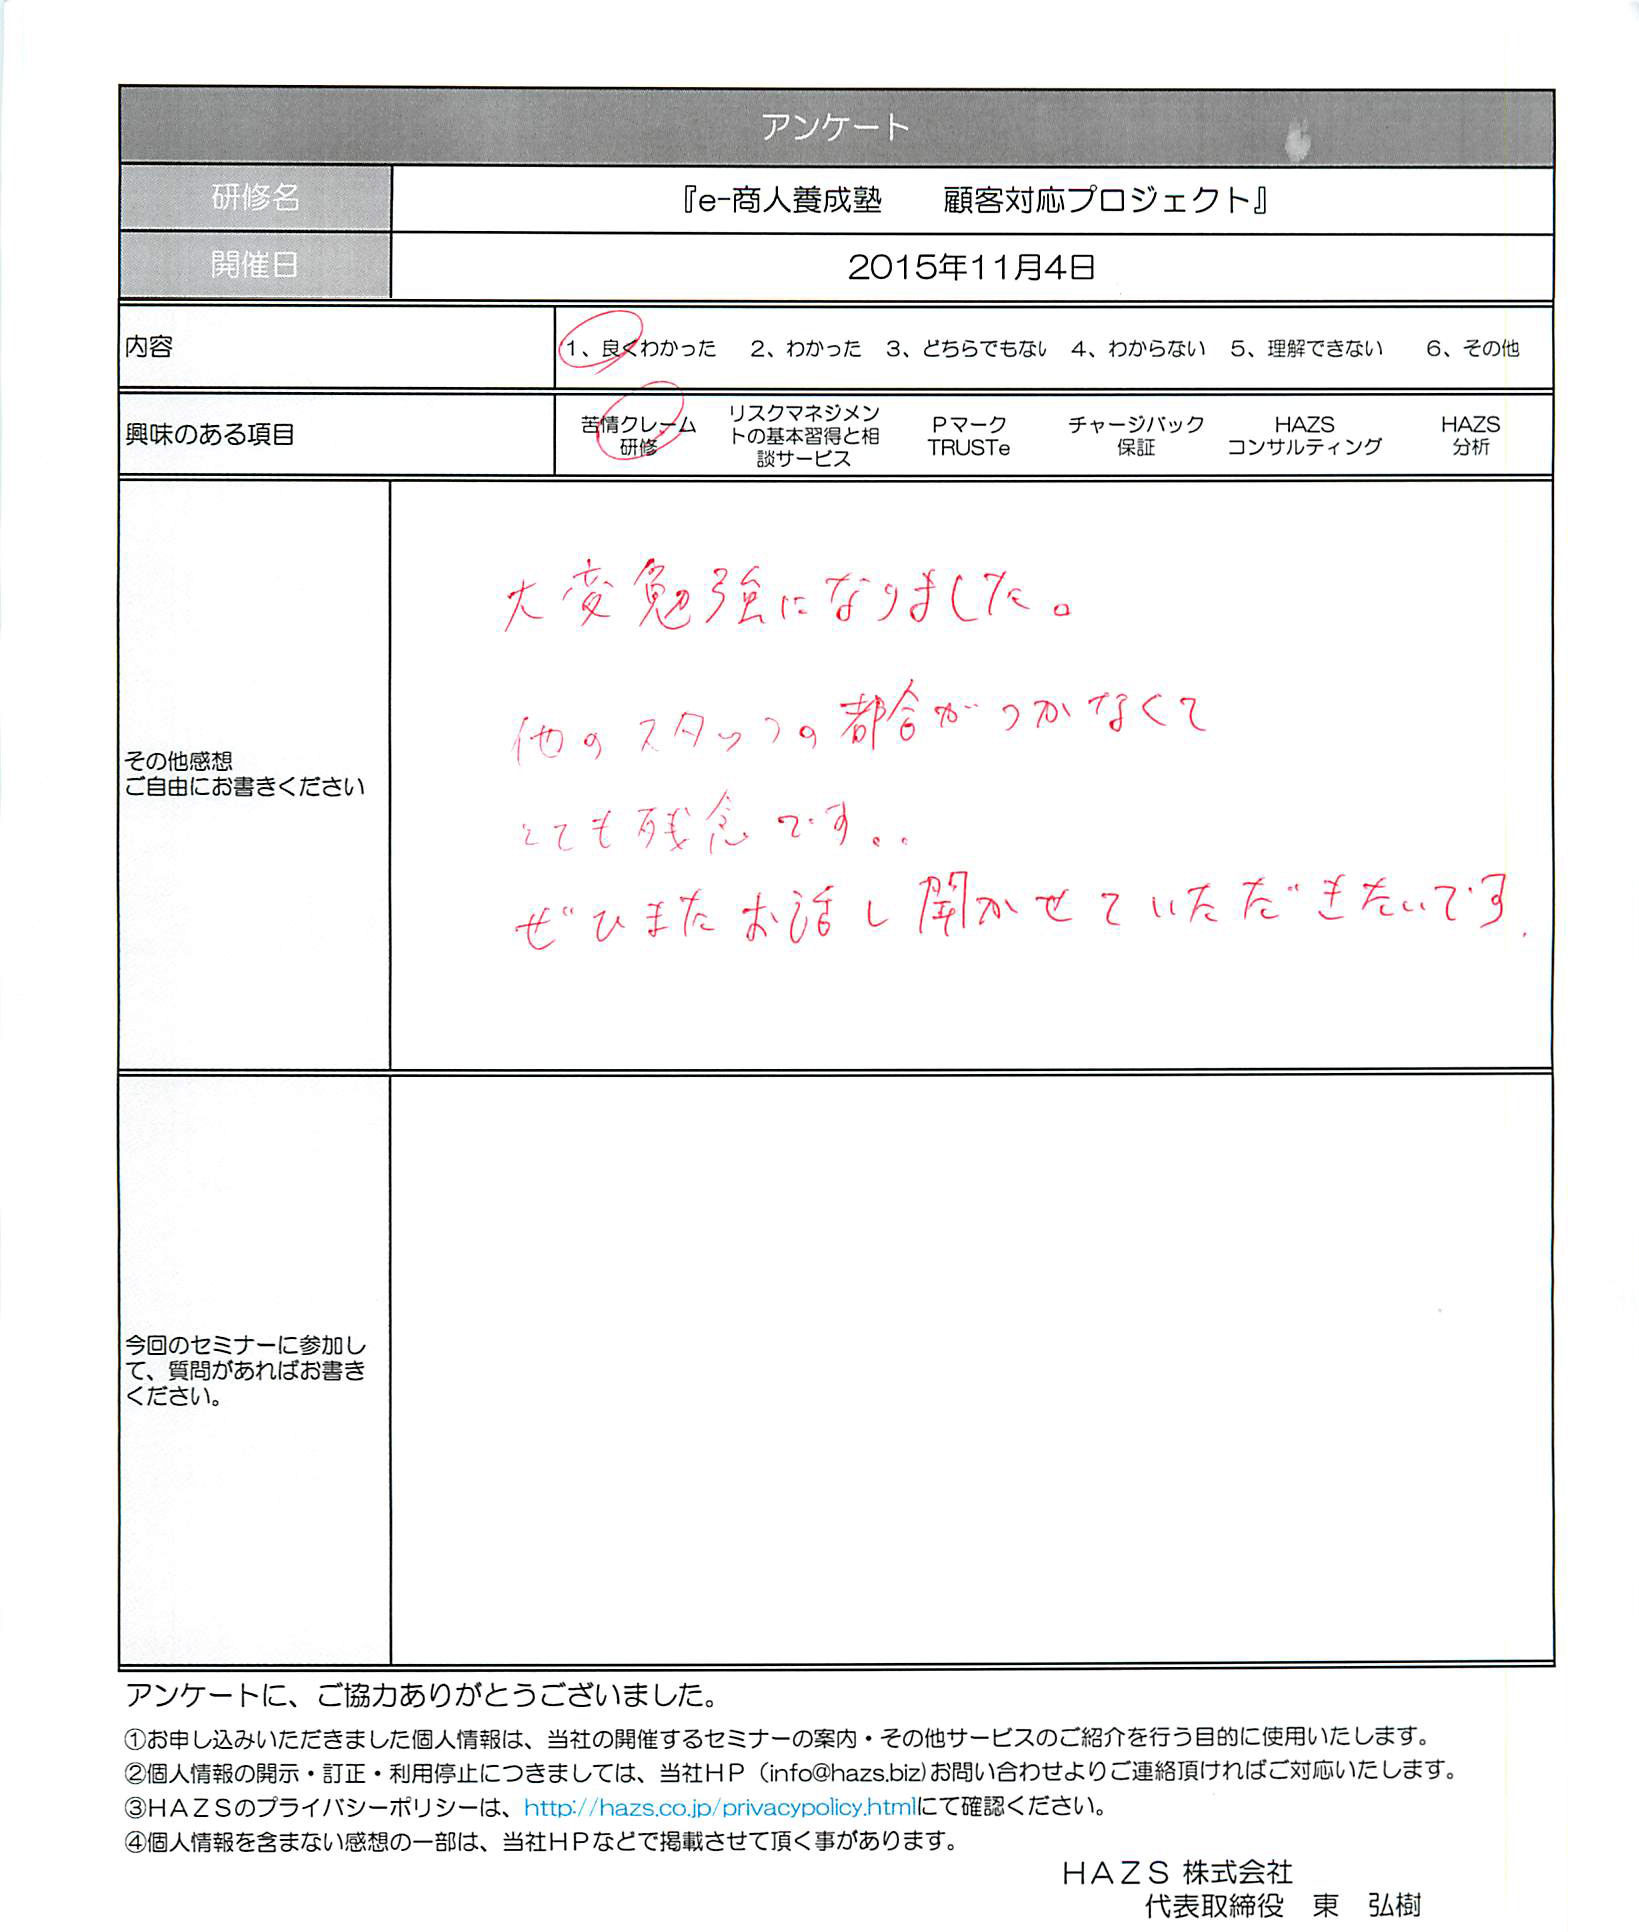 アンケート
研修名 『e-商人養成塾　　顧客対応プロジェクト』
開催日 2015年11月4日
内容 1、良くわかった 2、わかった 3、どちらでもない 4、わからない 5、理解できない 6、その他
興味のある項目
苦情クレーム
研修
リスクマネジメン
トの基本習得と相
談サービス
Pマーク
TRUSTe
チャージバック
保証
HAZS
コンサルティング
HAZS
分析
その他感想
ご自由にお書きください
大変勉強になりました。
他のスタッフの都合がつかなくて
とても残念です。。
ぜひまたお話し聞かせていただきたいです.
今回のセミナーに参加し
て、質問があればお書き
ください。
アンケートに、ご協力ありがとうございました。
①お申し込みいただきました個人情報は、当社の開催するセミナーの案内・その他サービスのご紹介を行う目的に使用いたします。
②個人情報の開示・訂正・利用停止につきましては、当社ＨＰ（info@hazs.biz)お問い合わせよりご連絡頂ければご対応いたします。
③ＨＡＺＳのプライバシーポリシーは、http://hazs.co.jp/privacypolicy.htmlにて確認ください。
④個人情報を含まない感想の一部は、当社ＨＰなどで掲載させて頂く事があります。
ＨＡＺＳ 株式会社
代表取締役　東　弘樹